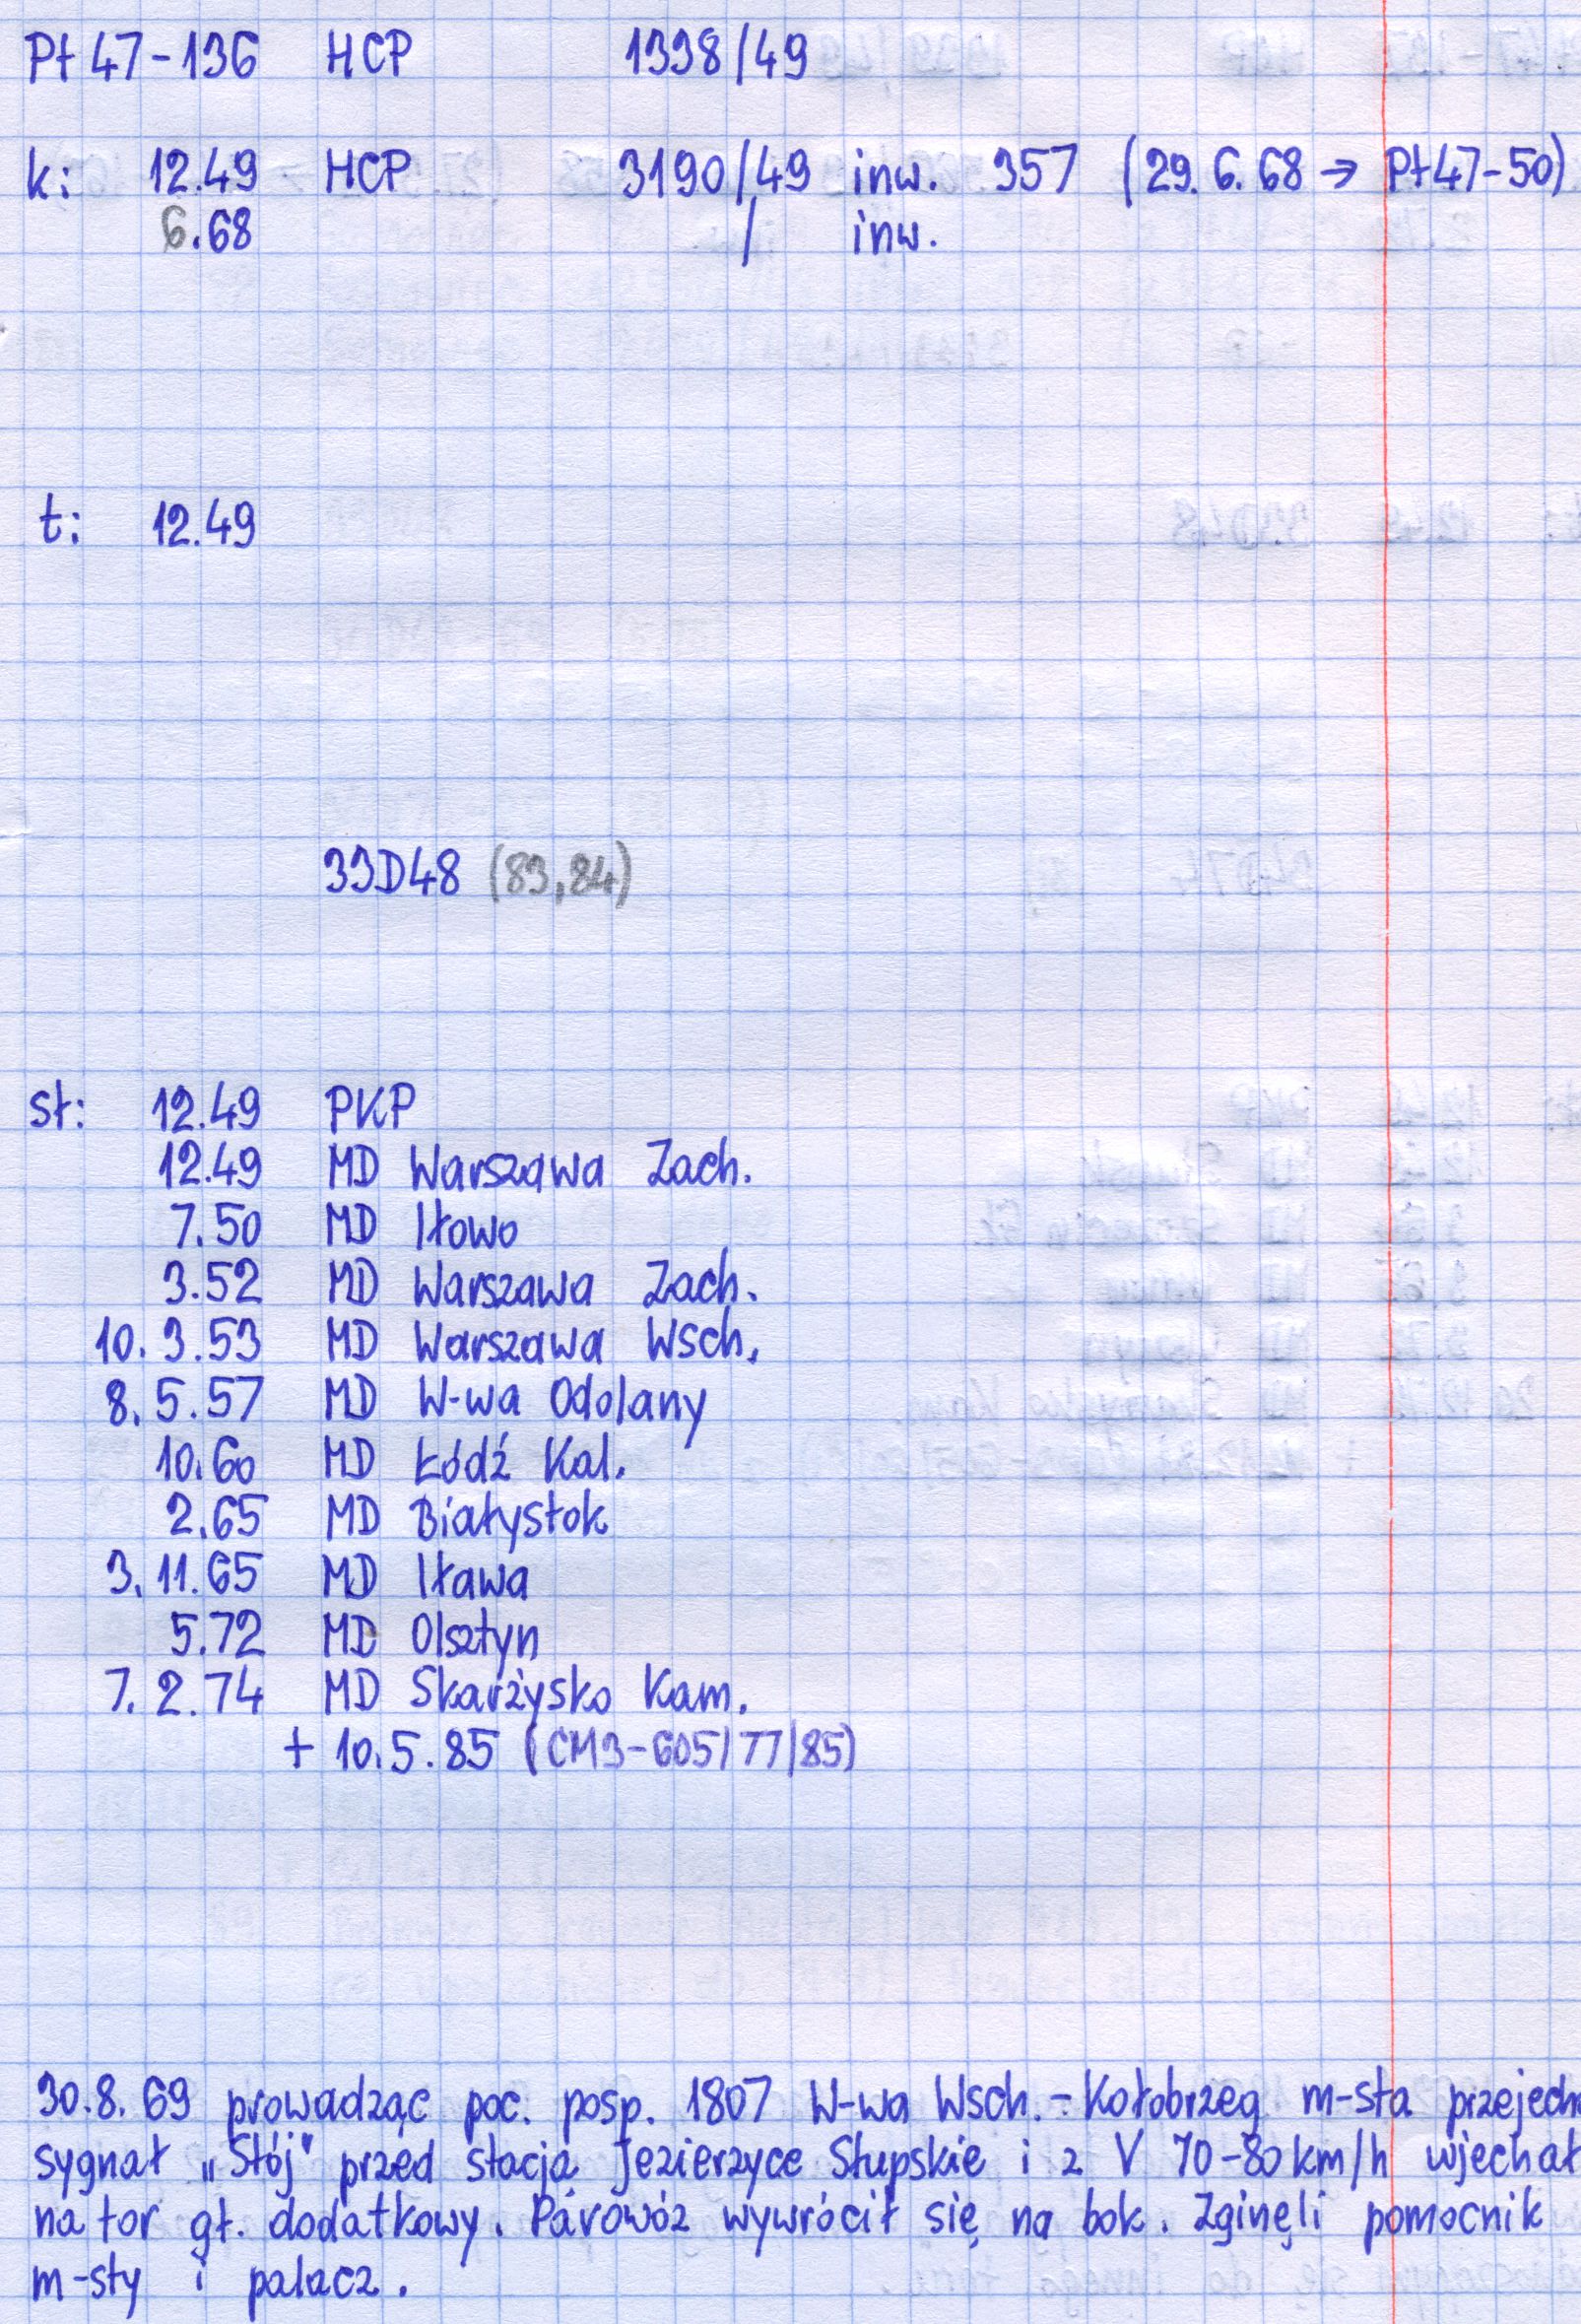 Pt47-136 HCP 1338/49
k: 12.49 HCP 3190/49 inw. 357 (29.6.68 → Pt47-50)
6.68 / inw.
t: 12.49
33D48 (83,84)
st: 12.49 PKP
12.49 MD Warszawa Zach.
7.50 MD Iłowo
3.52 MD Warszawa Zach.
10.3.53 MD Warszawa Wsch.
8.5.57 MD W-wa Odolany
10.60 MD Łódź Kal.
2.65 MD Białystok
3.11.65 MD Iława
5.72 MD Olsztyn
7.2.74 MD Skarżysko Kam.
+ 10.5.85 (CM3-605/77/85)
30.8.69 prowadząc poc. posp. 1807 W-wa Wsch. - Kołobrzeg m-sta przejech
sygnał „Stój" przed stacją Jezierzyce Słupskie i z V 70-80 km/h wjechał
na tor gł. dodatkowy. Parowóz wywrócił się na bok. Zginęli pomocnik
m-sty i palacz.